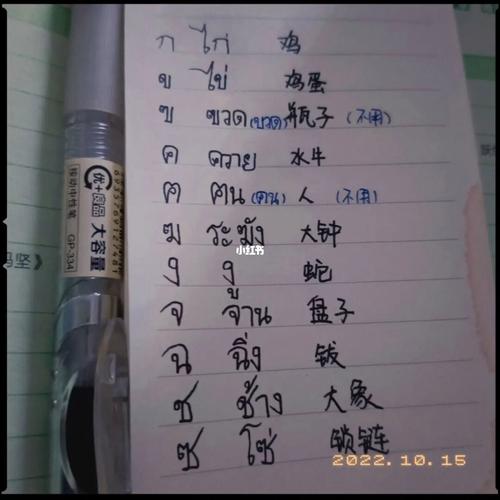 ก ไก่ 鸡
ข ไข่ 鸡蛋
ฃ ฃวด(ขวด)瓶子(不用)
ค ควาย 水牛
ฅ ฅน(คน)人 (不用)
ฆ ระฆัง 大钟
ง งู 蛇
จ จาน 盘子
ฉ ฉิ่ง 钹
ช ช้าง 大象
ซ โซ่ 锁链
小红书
2022.10.15
优+良品 大容量
按动中性笔 GP-334
6935767912748
冯坚》